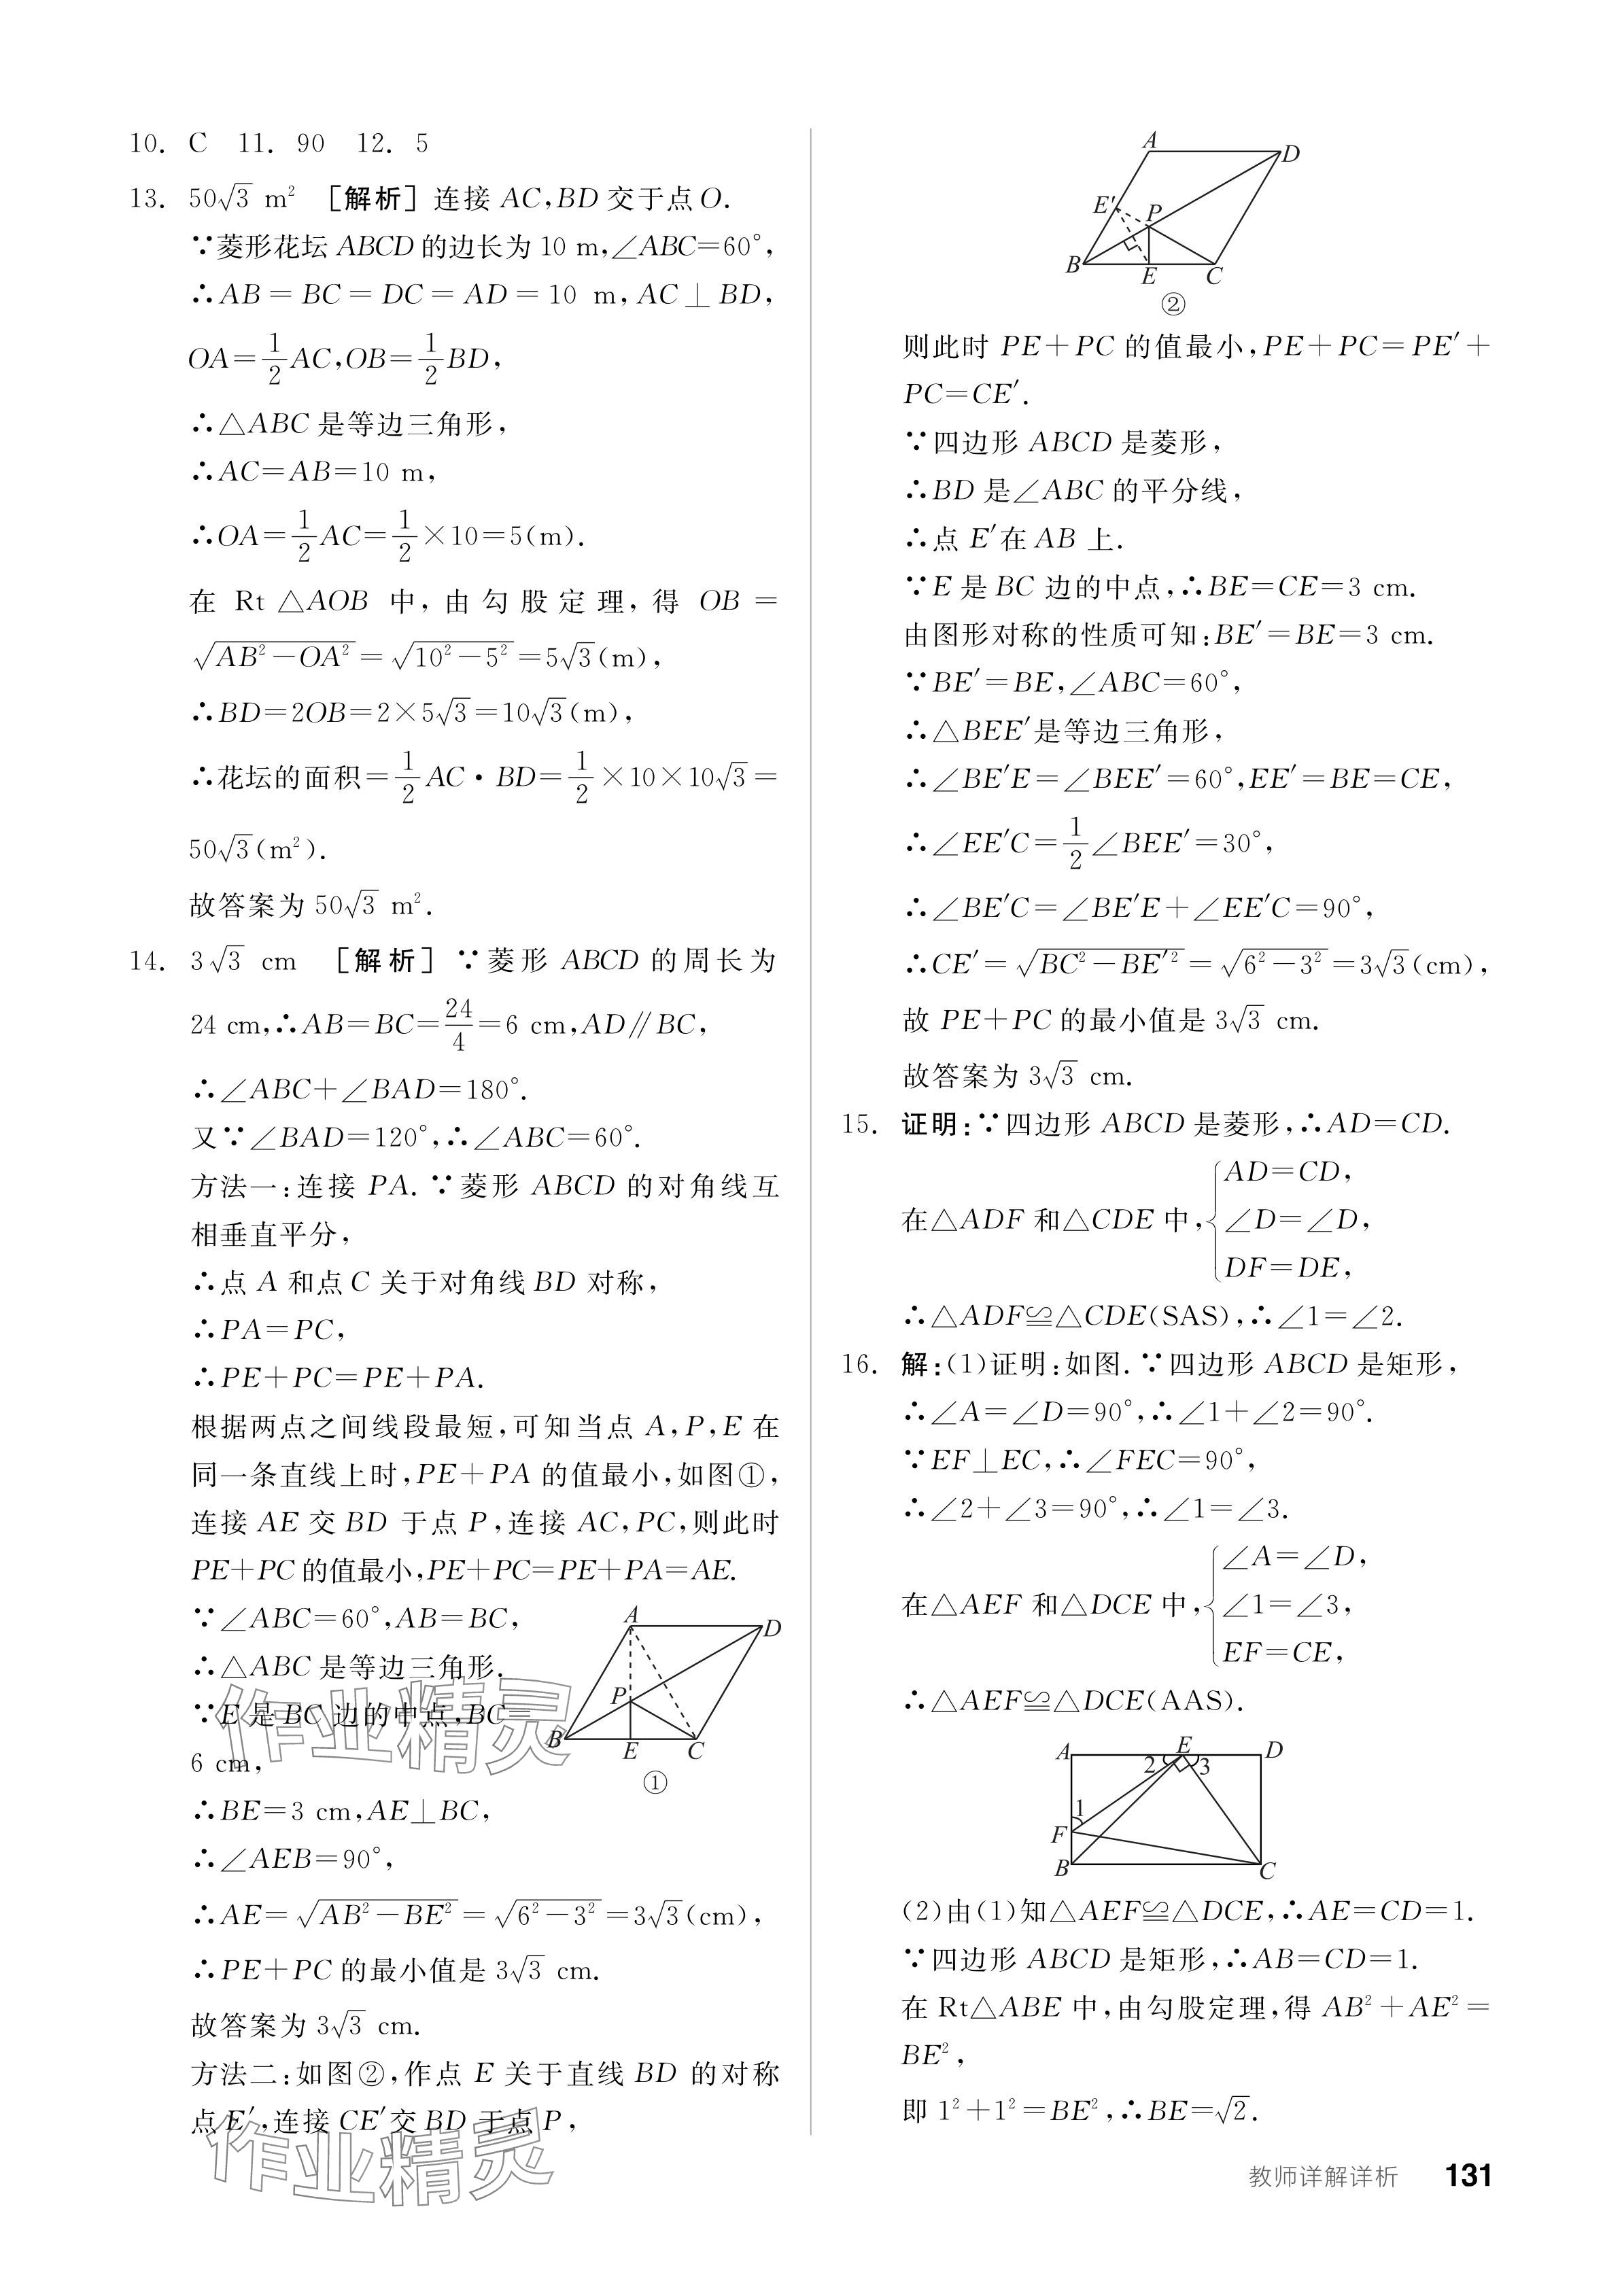 10. C 11. 90 12. 5
13. 50√3 m² [解析]连接 AC,BD 交于点O.
∵菱形花坛 ABCD 的边长为 10 m,∠ABC=60°,
∴AB=BC=DC=AD=10 m,AC⊥BD,
OA=1/2AC,OB=1/2BD,
∴△ABC 是等边三角形,
∴AC=AB=10 m,
∴OA=1/2AC=1/2×10=5(m).
在 Rt△AOB 中,由勾股定理,得 OB=
√(AB²-OA²)=√(10²-5²)=5√3(m),
∴BD=2OB=2×5√3=10√3(m),
∴花坛的面积=1/2AC·BD=1/2×10×10√3=
50√3(m²).
故答案为 50√3 m².
14. 3√3 cm [解析]∵菱形 ABCD 的周长为
24 cm,∴AB=BC=24/4=6 cm,AD∥BC,
∴∠ABC+∠BAD=180°.
又∵∠BAD=120°,∴∠ABC=60°.
方法一:连接 PA.∵菱形 ABCD 的对角线互
相垂直平分,
∴点 A 和点C 关于对角线BD 对称,
∴PA=PC,
∴PE+PC=PE+PA.
根据两点之间线段最短,可知当点 A,P,E 在
同一条直线上时,PE+PA 的值最小,如图①,
连接 AE 交 BD 于点 P,连接 AC,PC,则此时
PE+PC 的值最小,PE+PC=PE+PA=AE.
∵∠ABC=60°,AB=BC,
∴△ABC 是等边三角形.
∵E 是 BC 边的中点,BC=
6 cm,
A
D
P
B
E
C
①
∴BE=3 cm,AE⊥BC,
∴∠AEB=90°,
∴AE=√(AB²-BE²)=√(6²-3²)=3√3(cm),
∴PE+PC 的最小值是 3√3 cm.
故答案为 3√3 cm.
方法二:如图②,作点 E 关于直线 BD 的对称
点 E′,连接 CE′交 BD 于点 P,
作业精灵
作业精灵
A
D
E′
P
B
E
C
②
则此时 PE+PC 的值最小,PE+PC=PE′+
PC=CE′.
∵四边形 ABCD 是菱形,
∴BD 是∠ABC 的平分线,
∴点 E′在 AB 上.
∵E 是 BC 边的中点,∴BE=CE=3 cm.
由图形对称的性质可知:BE′=BE=3 cm.
∵BE′=BE,∠ABC=60°,
∴△BEE′是等边三角形,
∴∠BE′E=∠BEE′=60°,EE′=BE=CE,
∴∠EE′C=1/2∠BEE′=30°,
∴∠BE′C=∠BE′E+∠EE′C=90°,
∴CE′=√(BC²-BE′²)=√(6²-3²)=3√3(cm),
故 PE+PC 的最小值是 3√3 cm.
故答案为 3√3 cm.
15. 证明:∵四边形 ABCD 是菱形,∴AD=CD.
在△ADF 和△CDE 中,{AD=CD,
∠D=∠D,
DF=DE,
∴△ADF≌△CDE(SAS),∴∠1=∠2.
16. 解:(1)证明:如图.∵四边形 ABCD 是矩形,
∴∠A=∠D=90°,∴∠1+∠2=90°.
∵EF⊥EC,∴∠FEC=90°,
∴∠2+∠3=90°,∴∠1=∠3.
在△AEF 和△DCE 中,{∠A=∠D,
∠1=∠3,
EF=CE,
∴△AEF≌△DCE(AAS).
A
E
D
2
3
1
F
B
C
(2)由(1)知△AEF≌△DCE,∴AE=CD=1.
∵四边形 ABCD 是矩形,∴AB=CD=1.
在 Rt△ABE 中,由勾股定理,得 AB²+AE²=
BE²,
即 1²+1²=BE²,∴BE=√2.
教师详解详析 131